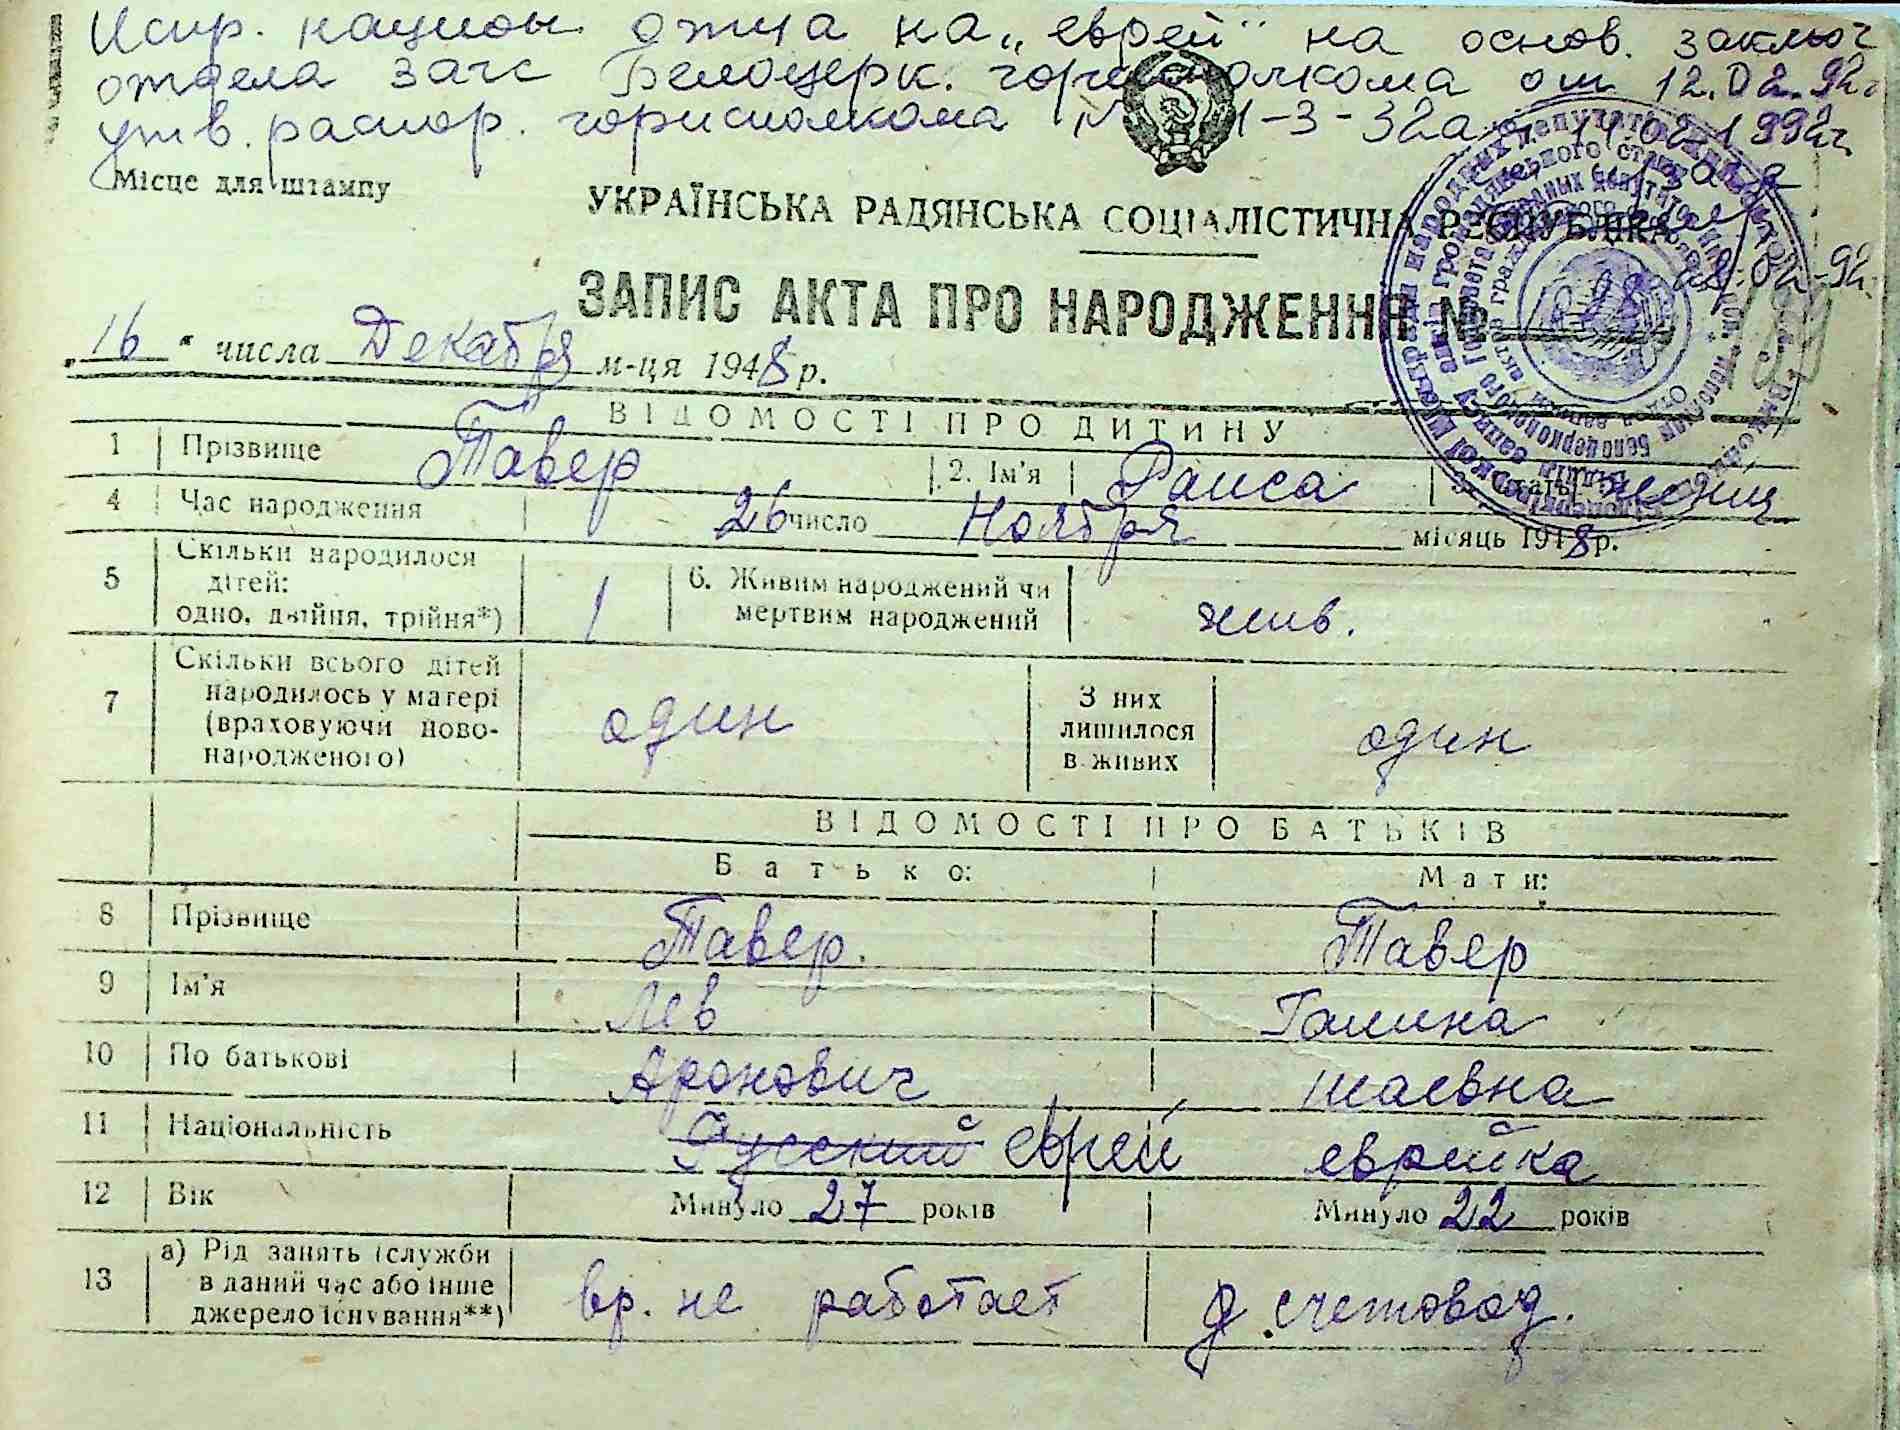 Испр. национ отца на „еврей" на основ. заключ
отдела загс Белоцерк. горисполкома от 12.02.92г
утв. распор. горисполкома № 1-3-32а 14.02.1992г.
Місце для штампу
УКРАЇНСЬКА РАДЯНСЬКА СОЦІАЛІСТИЧНА РЕСПУБЛІКА
28.02-92.
ЗАПИС АКТА ПРО НАРОДЖЕННЯ №
„16" числа Декабря м-ця 1948 р.
ВІДОМОСТІ ПРО ДИТИНУ
1 Прізвище Тавер 2. Ім'я Раиса 3. Стать женщ
4 Час народження 26 число Ноября місяць 1948 р.
5 Скільки народилося дітей: одно, двійня, трійня*) 1 6. Живим народжений чи мертвим народжений жив.
7 Скільки всього дітей народилось у матері (враховуючи ново-народженого) один З них лишилося в живих один
ВІДОМОСТІ ПРО БАТЬКІВ
Батько: Мати:
8 Прізвище Тавер. Тавер
9 Ім'я Лев Галина
10 По батькові Аронович Шаевна
11 Національність Русский еврей еврейка
12 Вік Минуло 27 років Минуло 22 років
13 а) Рід занять (служби в даний час або інше джерело існування**) вр. не работает счетовод.